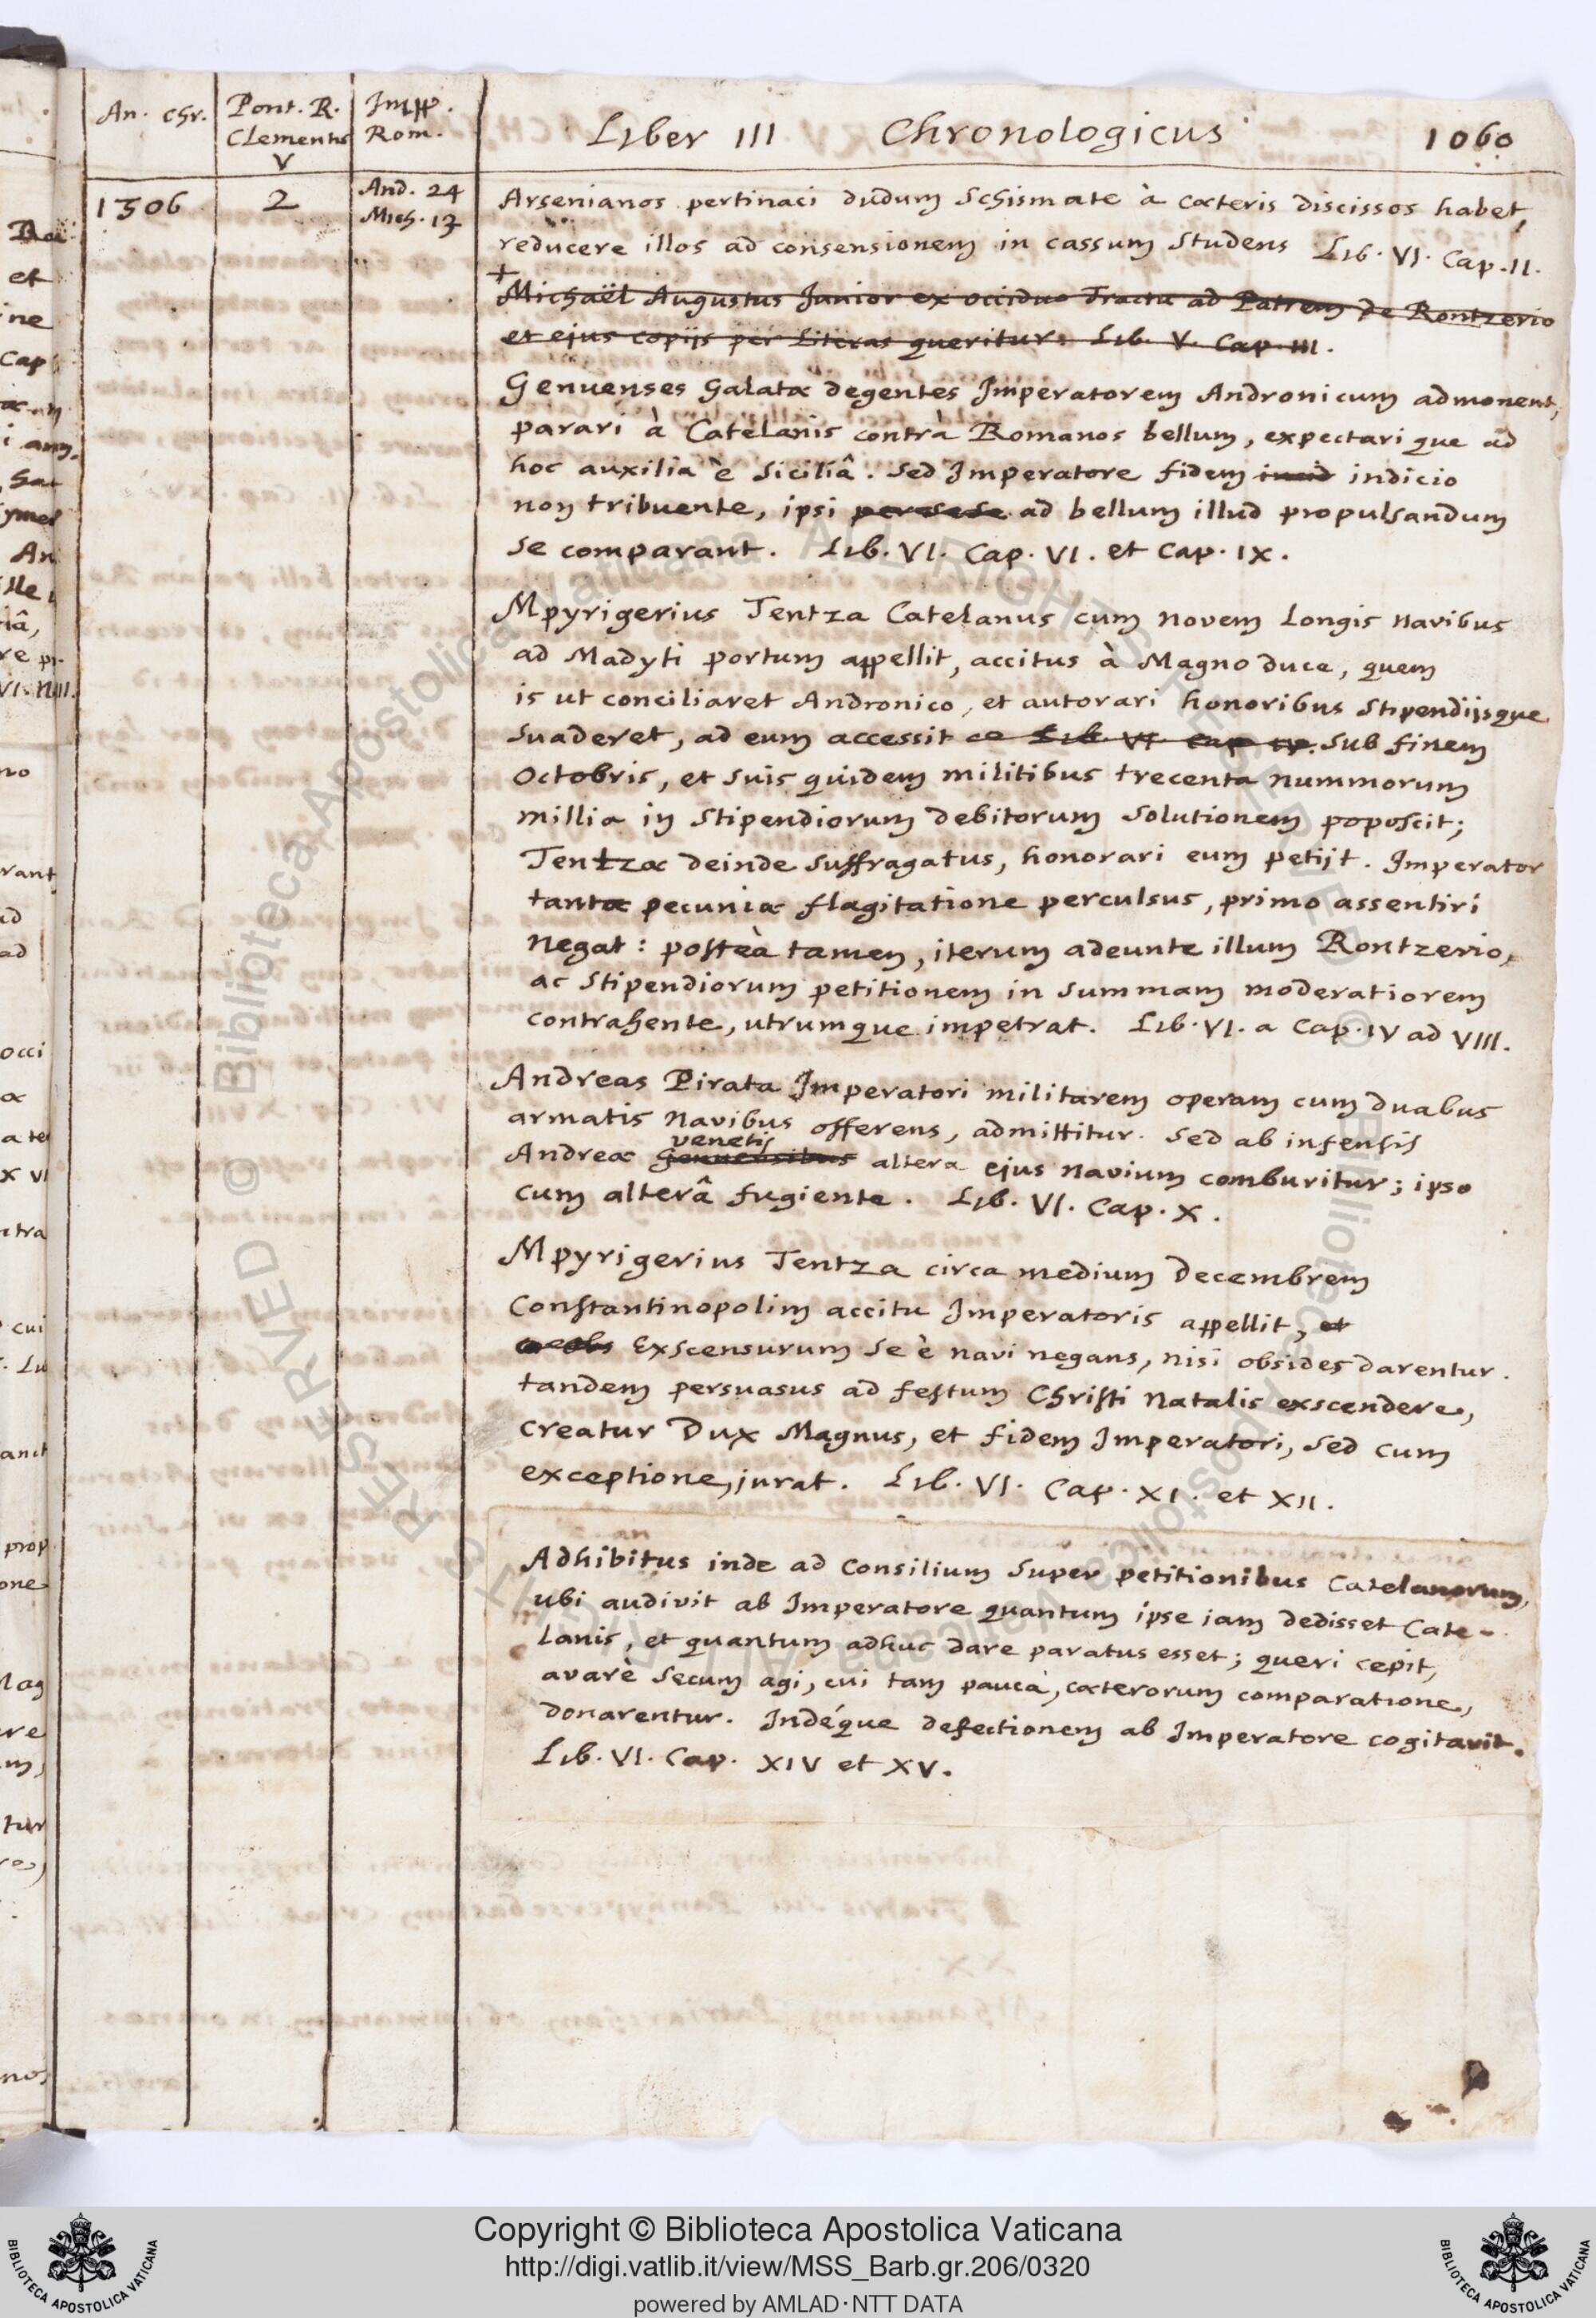 An. Chr. Pont. R. Clementis V Impp. Rom. Liber III Chronologicus 1060
1306 2 And. 24 Mich. 13
Arsenianos pertinaci dudum Schismate à cæteris discissos habet,
reducere illos ad consensionem in cassum studens Lib. VI. Cap. II.
+
Michaël Augustus Junior ex occiduo Tractu ad Patrem de Rontzerio
et ejus copijs per Literas queritur. Lib. V. Cap. III.
Genuenses Galatæ degentes Imperatorem Andronicum admonent,
parari à Catelanis contrà Romanos bellum, expectarique ad
hoc auxilia è Siciliâ. Sed Imperatore fidem indicio
non tribuente, ipsi per sese ad bellum illud propulsandum
se comparant. Lib. VI. Cap. VI. et Cap. IX.
Mpyrigerius Tentza Catelanus cum novem Longis navibus
ad Madyti portum appellit, accitus à Magno duce, quem
is ut conciliaret Andronico, et autorari honoribus Stipendijsque
suaderet, ad eum accessit Lib. VI Cap IV. sub finem
Octobris, et suis quidem militibus trecenta nummorum
millia in Stipendiorum debitorum solutionem poposcit;
Tentzæ deinde suffragatus, honorari eum petijt. Imperator
tantæ pecuniæ flagitatione perculsus, primo assentiri
negat: posteà tamen, iterum adeunte illum Rontzerio,
ac Stipendiorum petitionem in summam moderatiorem
contrahente, utrumque impetrat. Lib. VI. a Cap. IV ad VIII.
Andreas Pirata Imperatori militarem operam cum duabus
armatis navibus offerens, admittitur. Sed ab infensis
venetis
Andreæ Genuensibus altera ejus navium comburitur; ipso
cum alterâ fugiente. Lib. VI. Cap. X.
Mpyrigerius Tentza circa medium Decembrem
Constantinopolim accitu Imperatoris appellit, et
Exscensurum se è navi negans, nisi obsides darentur.
tandem persuasus ad festum Christi Natalis exscendere,
creatur Dux Magnus, et fidem Imperatori, sed cum
exceptione, jurat. Lib. VI. Cap. XI. et XII.
Adhibitus inde ad Consilium super petitionibus Catelanorum,
ubi audivit ab Imperatore quantum ipse iam dedisset Cate-
lanis, et quantum adhuc dare paratus esset; queri cepit,
avarè secum agi, cui tam pauca, cæterorum comparatione,
donarentur. Indéque defectionem ab Imperatore cogitavit.
Lib. VI. Cap. XIV et XV.
Copyright © Biblioteca Apostolica Vaticana
http://digi.vatlib.it/view/MSS_Barb.gr.206/0320
powered by AMLAD·NTT DATA